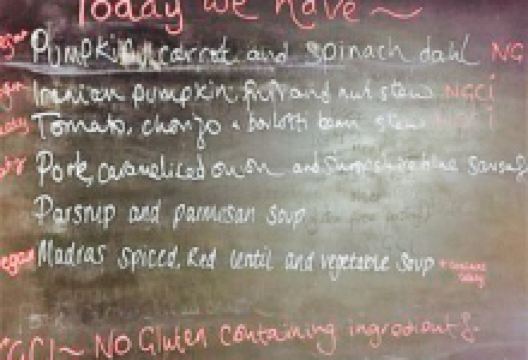 Today we have ~
Pumpkin, carrot and spinach dahl NG
Iranian pumpkin, fruit and nut stew NGCI
Tomato, chorizo & borlotti bean stew NGCI
Pork, caramelised onion and Shropshire blue sausage
Parsnip and parmesan soup
vegan Madras spiced, Red lentil and vegetable soup +
NGCI ~ No Gluten containing ingredients.